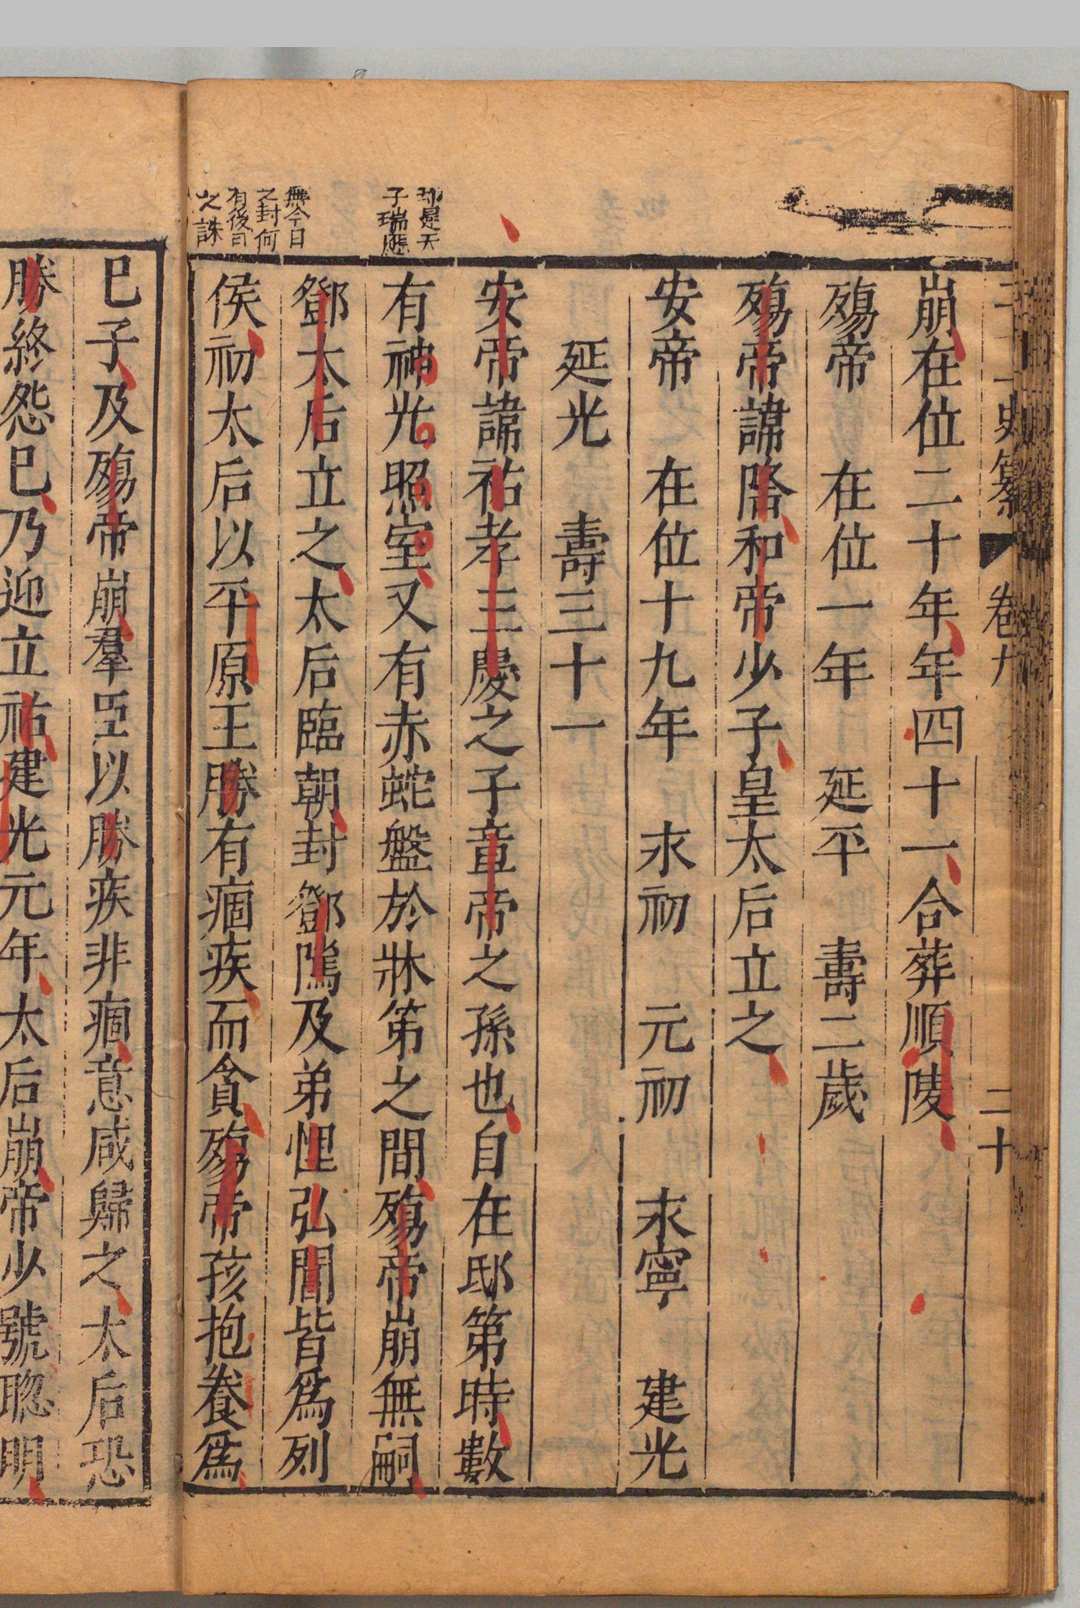 史纂
卷九
二十
崩在位二十年年四十一合葬順陵
殤帝　在位一年　延平　壽二歲
殤帝諱隆和帝少子皇太后立之
安帝　在位十九年　永初　元初　永寧　建光
延光　壽三十一
安帝諱祐孝王慶之子章帝之孫也自在邸第時數
有神光照室又有赤蛇盤於牀第之間殤帝崩無嗣
鄧太后立之太后臨朝封鄧隲及弟悝弘閶皆爲列
侯初太后以平原王勝有痼疾而貪殤帝孩抱養爲
即是天
子瑞應
無今日
之封何
有後司
之誅
已子及殤帝崩羣臣以勝疾非痼意咸歸之太后恐
勝終怨已乃迎立祐建光元年太后崩帝少號聰明